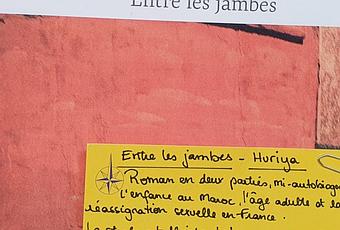 Entre les jambes
Entre les jambes - Huriya
Roman en deux parties, mi-autobiogra
l'enfance au Maroc, l'âge adulte et la
réassignation sexuelle en France.